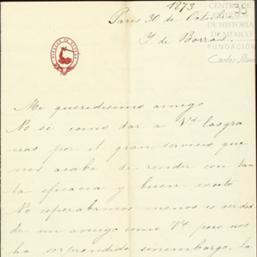 1873
Paris 30 de Octubre
J. de Borras
CENTRO DE
DE HISTORIA
DE MEXICO
FUNDACIÓN
Carlos Slim
Mi queridisimo amigo
No sé como dar a Vd las gra
cias por el gran servicio que
nos acaba de render con tan
ta eficacia y buen exito
No esperabamos menos es verdad
de un amigo como Vd pero nos
ha sorprendido sinembargo, la